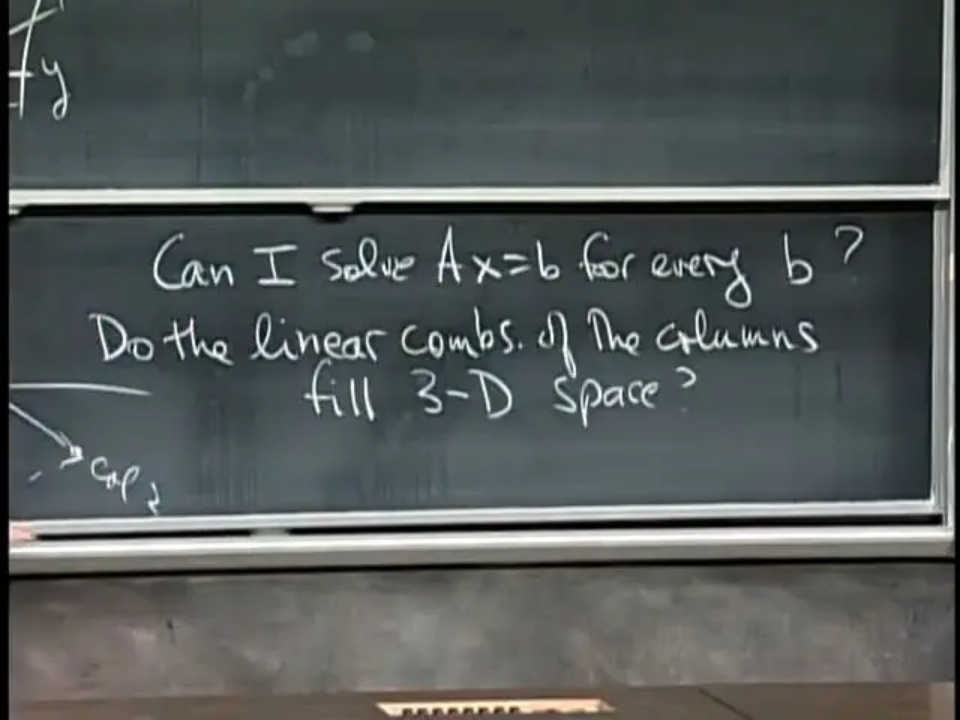 y
Can I solve Ax=b for every b?
Do the linear combs. of the columns
fill 3-D space?